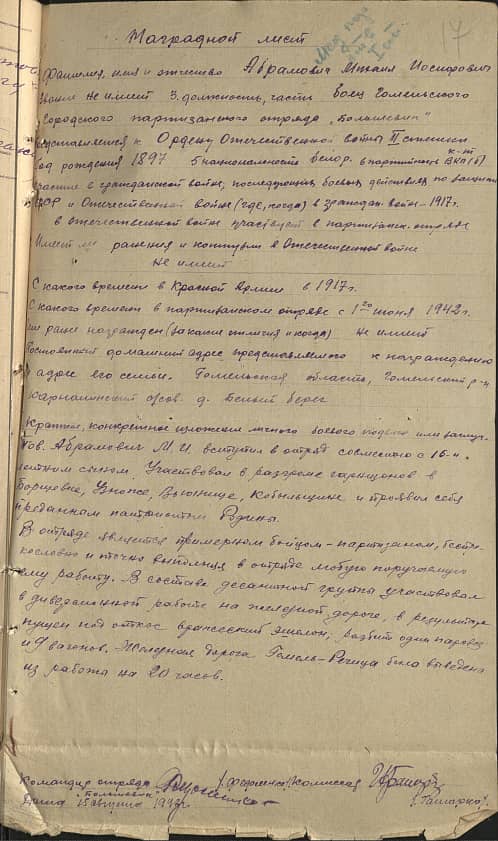 17
Наградной лист
Фамилия, имя и отчество Абрамович Михаил Иосифович
Звание Не имеет 3. должность, часть Боец Гомельского
городского партизанского отряда „Большевик"
представляется к Ордену Отечественной войны II степени
год рождения 1897 5 национальность белор. 6 партийность к-т ВКП(б)
участие в гражданской войне, последующих боевых действиях по защите
СССР и Отечественной войне (где, когда) в граждан. войне – 1917г.
в отечественной войне участвует в партизанск. отряде
Имеет ли ранения и контузии в Отечественной войне
не имеет
С какого времени в Красной Армии в 1917г.
С какого времени в партизанском отряде с 1го июня 1942г.
ранее награжден (за какие отличия и когда) не имеет
Постоянный домашний адрес представляемого к награждению
и адрес его семьи. Гомельская область, Гомельский р-н
с/сов. д. Белый берег
Краткое, конкретное изложение личного боевого подвига или заслуг
Тов. Абрамович М.И. вступил в отряд совместно с 16-и
летним сыном. Участвовал в разгроме гарнизонов в
Борщовке, Узнаже, Вьюнище, Кобыльщине и проявил себя
преданном патриотом Родины.
В отряде является примерным бойцом-партизаном, беспре-
кословно и точно выполняя в отряде любую поручаемую
ему работу. В составе десантной группы участвовал
в диверсионной работе на железной дороге, в результате
пущен под откос вражеский эшелон, разбит один паровоз
и 9 вагонов. Железная дорога Гомель-Речица была выведена
из работы на 20 часов.
Командир отряда „Большевик" Комиссар
15 августа 1943г.